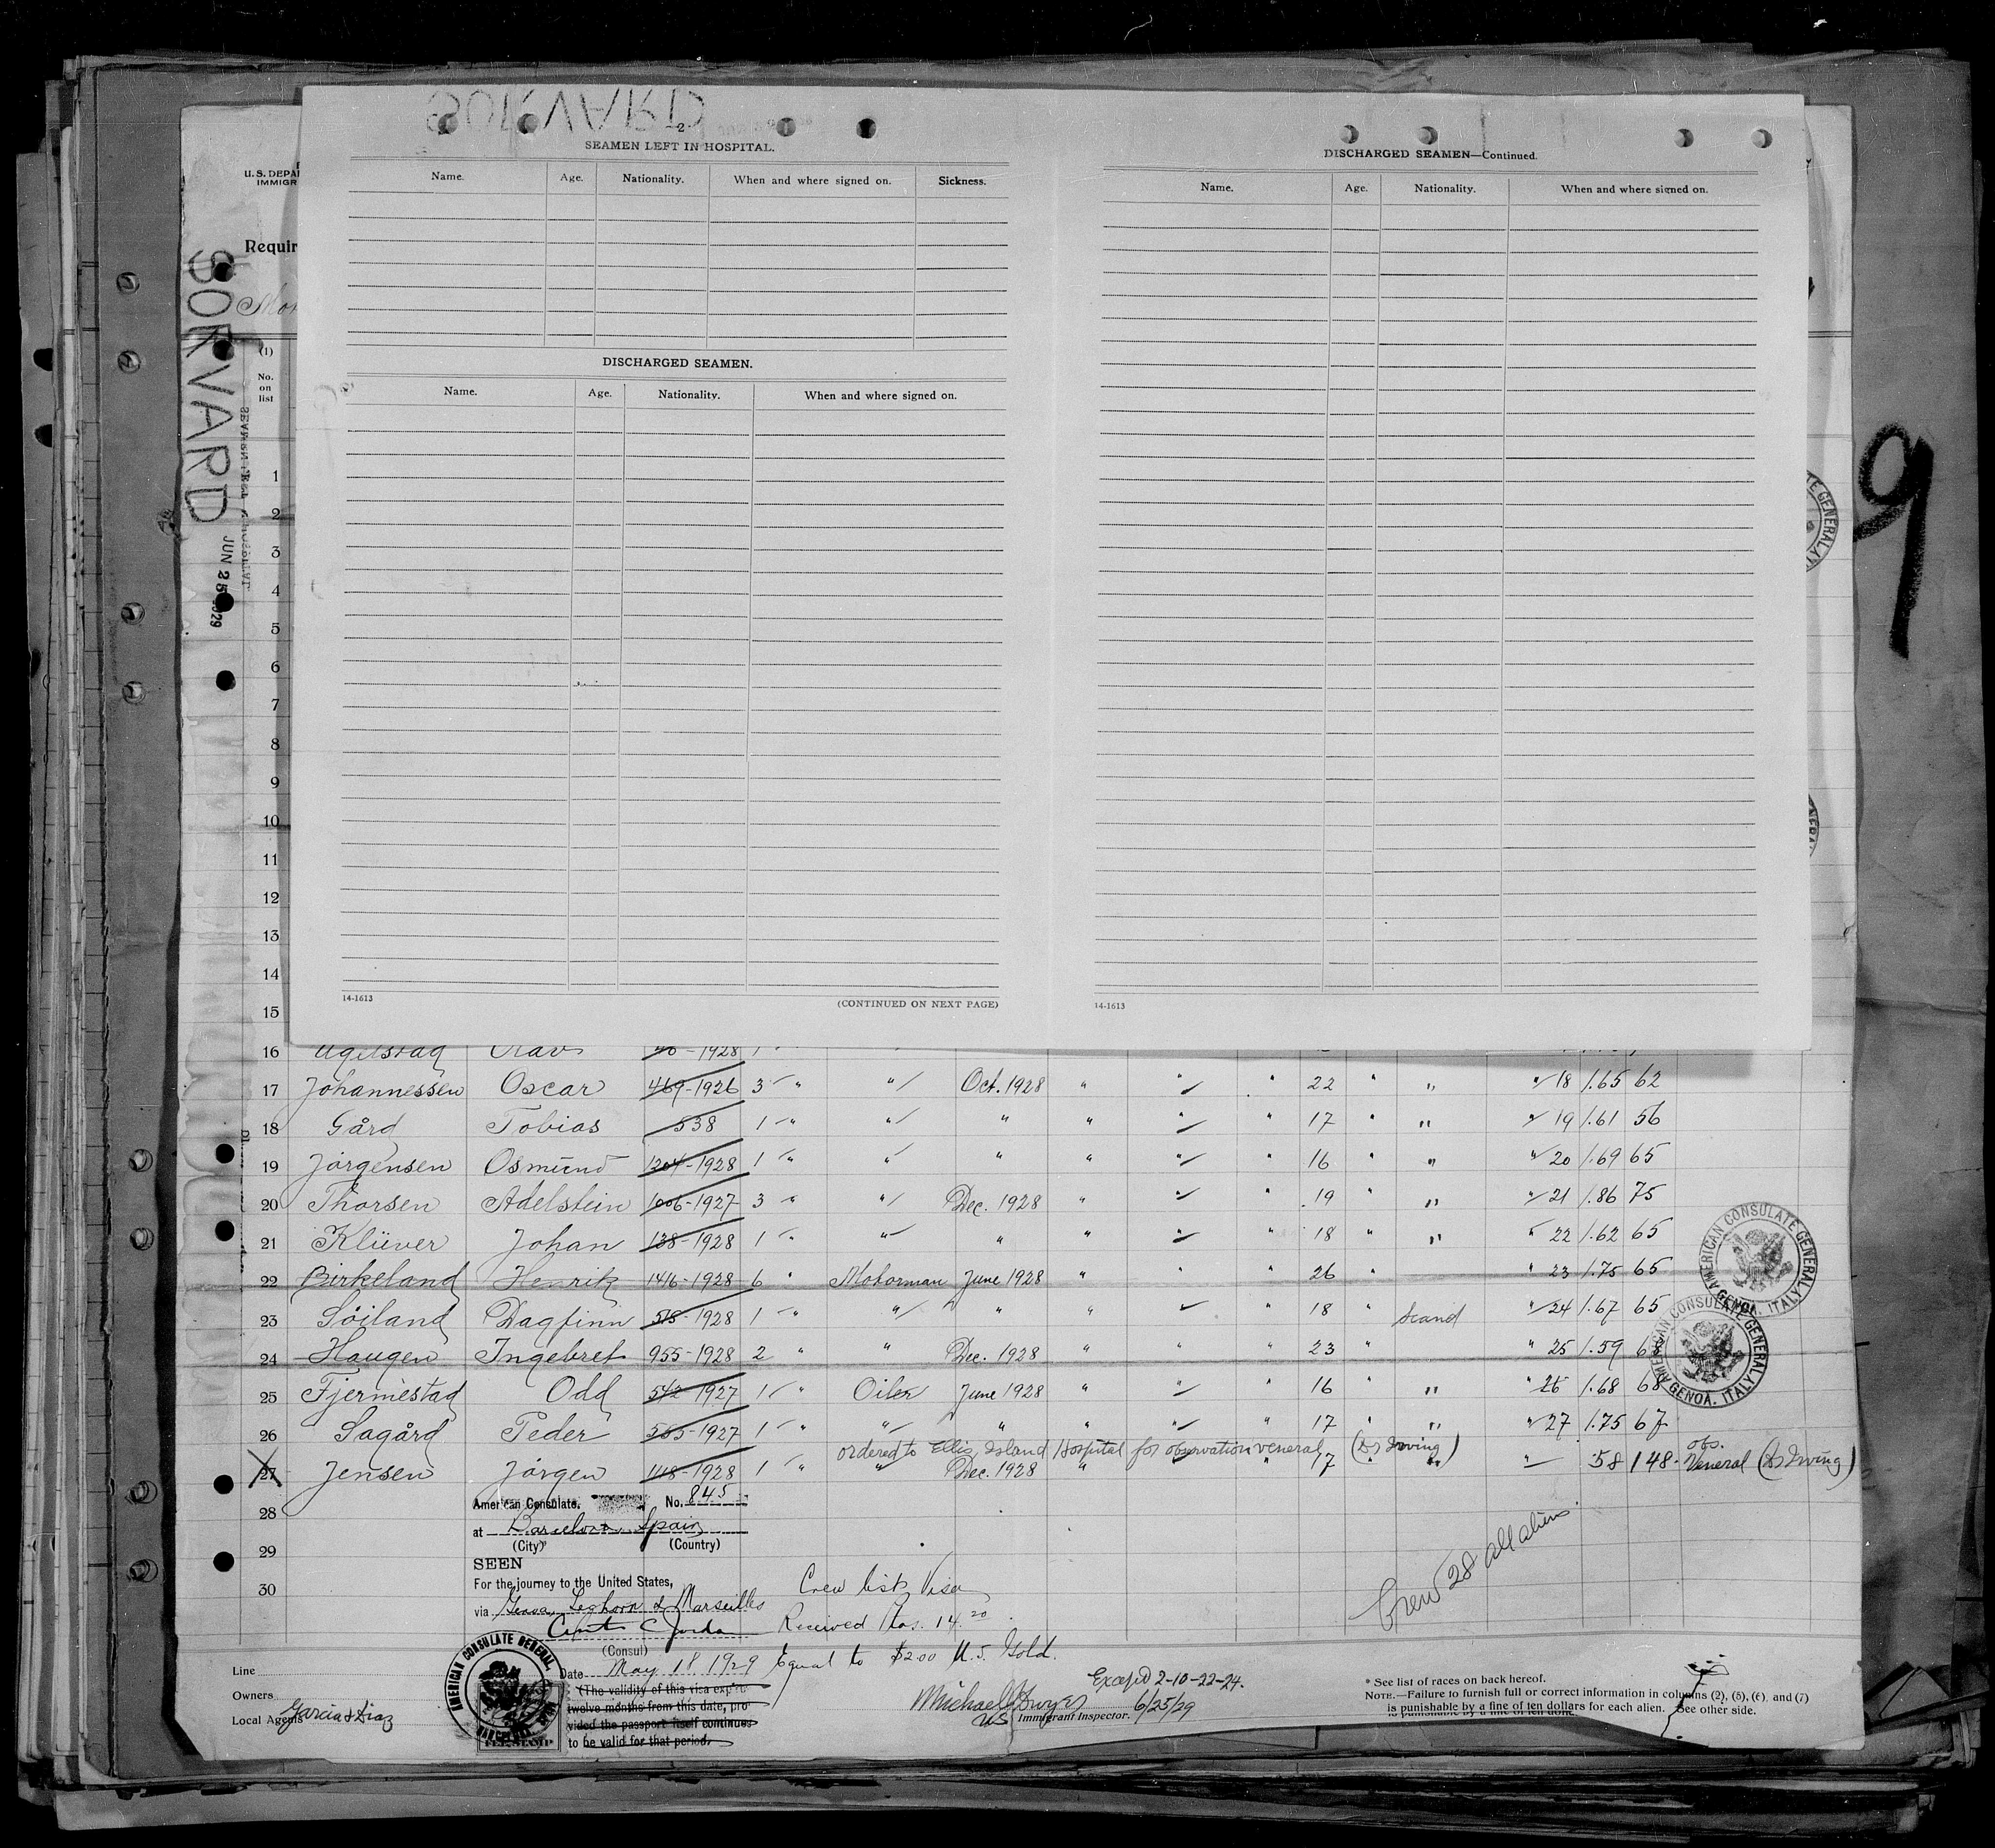 -2-
SEAMEN LEFT IN HOSPITAL.
Name. Age. Nationality. When and where signed on. Sickness.
DISCHARGED SEAMEN.
Name. Age. Nationality. When and where signed on.
14-1613 (CONTINUED ON NEXT PAGE)
DISCHARGED SEAMEN—Continued.
Name. Age. Nationality. When and where signed on.
14-1613
U.S. DEPA
IMMIGR
Requir
SORVARD
JUN 25 1929
(1)
No.
on
list
1
2
3
4
5
6
7
8
9
10
11
12
13
14
15
16 Ugelstad Olav 1928 1
17 Johannessen Oscar 469-1926 3 " " Oct. 1928 " " " 22 " " " 18 1.65 62
18 Gård Tobias 538 1 " " " " " " 17 " " " 19 1.61 56
19 Jørgensen Osmund 1204-1928 1 " " " " " " 16 " " " 20 1.69 65
20 Thorsen Adelstein 1006-1927 3 " " Dec. 1928 " " " 19 " " " 21 1.86 75
21 Klüver Johan 138-1928 1 " " " " " " 18 " " " 22 1.62 65
22 Birkeland Henrik 1416-1928 6 " Motorman June 1928 " " " 26 " " 23 1.75 65
23 Söiland Dagfinn 515-1928 1 " " " " " " 18 " Scand " 24 1.67 65
24 Haugen Ingebret 955-1928 2 " " Dec. 1928 " " " 23 " " 25 1.59
25 Fjermestad Odd 542-1927 1 " Oiler June 1928 " " " 16 " " " 26 1.68 68
26 Sagård Peder 555-1927 1 " " " " " " 17 " " " 27 1.75 67
ordered to Ellis Island Hospital for observation veneral (Dr Irving)
27 Jensen Jörgen 1118-1928 1 " " Dec. 1928 " " " 17 " " " 58 148 obs. Veneral (Dr Irving)
28
29
30
American Consulate. No. 845
at Barcelona, Spain
(City) (Country)
SEEN
For the journey to the United States,
via Genoa, Leghorn & Marseilles
(Consul)
Date May 18 1929
(The validity of this visa expires
twelve months from this date, pro-
vided the passport itself continues
to be valid for that period.
FEE STAMP
Crew list Visa
Received Ptas. 14.20
Equal to $2.00 U.S. Gold.
Crew 28 all aliens
AMERICAN CONSULATE GENERAL
AMERICAN CONSULATE GENERAL GENOA, ITALY
AMERICAN CONSULATE GENERAL GENOA, ITALY
Line
Owners
Local Agents Garcia & Diaz
Except 2-10-22-24.
Michael Dwyer 6/25/29
US Immigrant Inspector.
* See list of races on back hereof.
NOTE.—Failure to furnish full or correct information in columns (2), (5), (6), and (7)
is punishable by a fine of ten dollars for each alien. See other side.
9